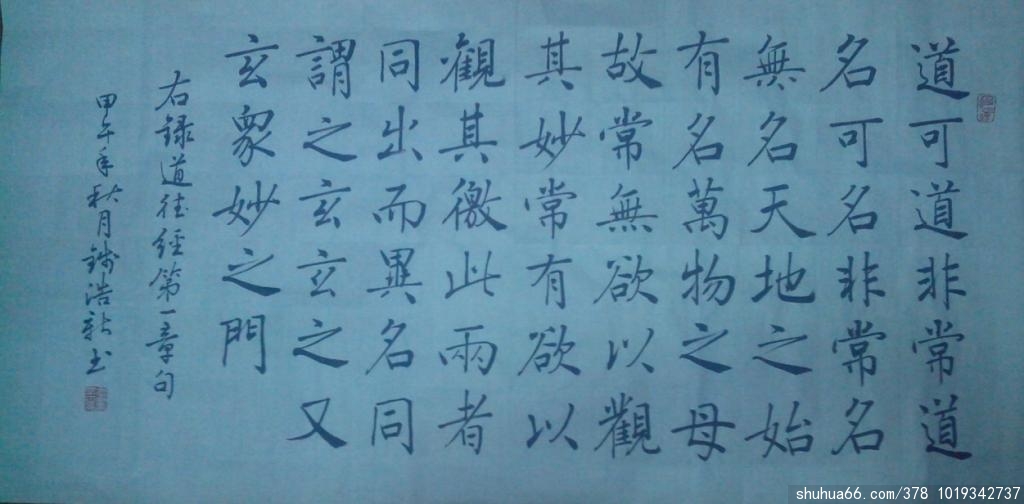 道可道非常道
名可名非常名
無名天地之始
有名萬物之母
故常無欲以觀
其妙常有欲以
觀其徼此兩者
同出而異名同
謂之玄玄之又
玄眾妙之門
右録道德經第一章句
甲午年秋月錢浩新书
shuhua66.com/378 1019342737